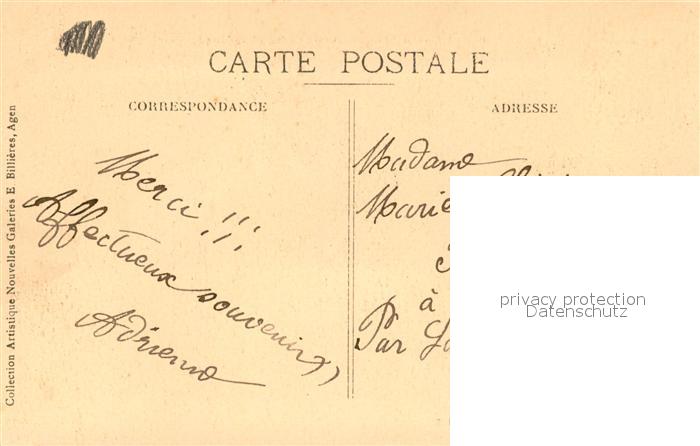 CARTE POSTALE
CORRESPONDANCE
ADRESSE
Merci !!!
Affectueux souvenirs
Adrienne
Madame
Marie
à
Par
privacy protection
Datenschutz
Collection Artistique Nouvelles Galeries E Billières, Agen